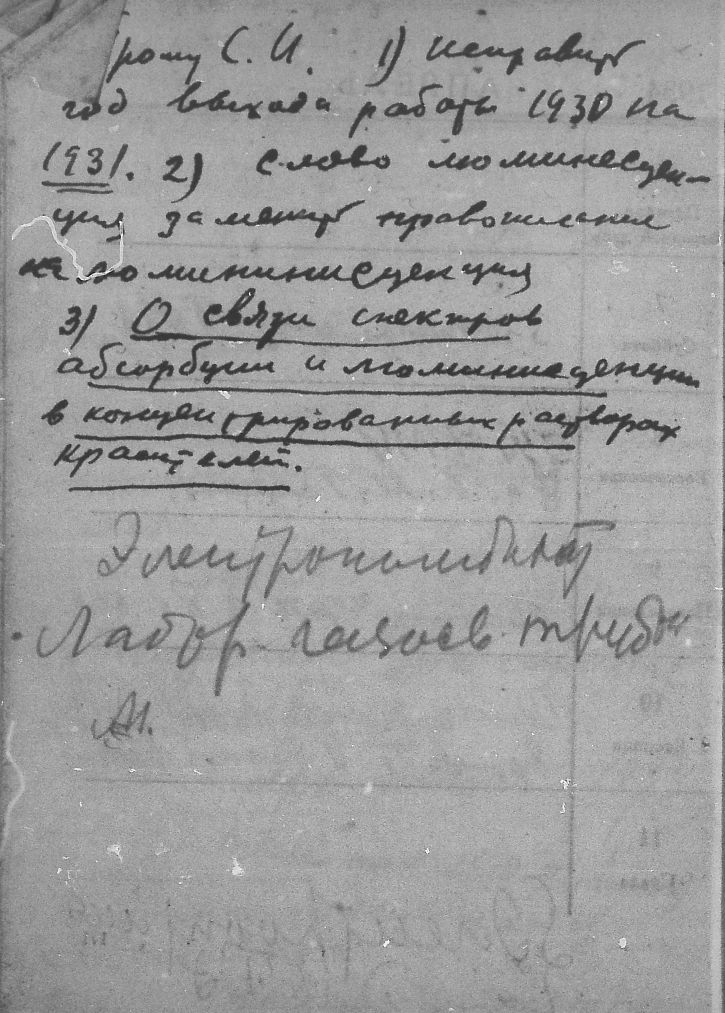 рому С. И. 1) исправить
год выхода работы 1930 на
1931. 2) слово люминесцен-
ция заменить правописание
на люмининисценция
3) О связи спектров
абсорбции и люминисценции
в концентрированных растворах
красителей.
Электрокомбинат
Лабор. газосв. трубок